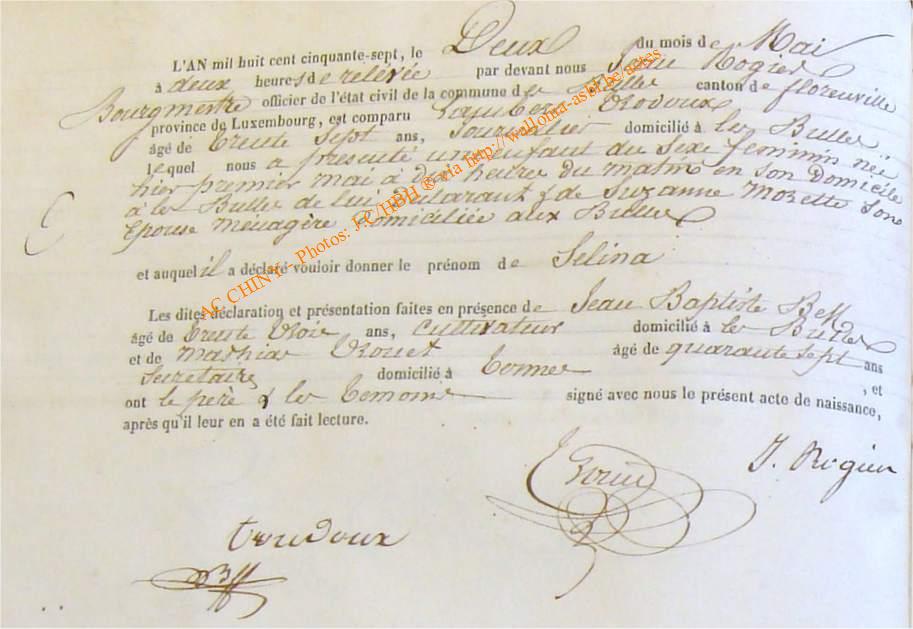 L'AN mil huit cent cinquante-sept, le Deux du mois de Mai
à deux heures de relévée par devant nous Jean Rogier
Bourgmestre officier de l'état civil de la commune de les Bulles canton de florenville
province de Luxembourg, est comparu Lambert
âgé de trente sept ans, Journalier domicilié à les Bulles
lequel nous a presenté un enfant du sexe feminin née
hier premier mai à dix heure du matin en son Domicile
à les Bulles de lui Declarant & de Suzanne Mozette Sone
Epouse ménagère domiciliée aux Bulles
et auquel il a déclaré vouloir donner le prénom de Selina
Les dites déclaration et présentation faites en présence de Jean Baptiste
âgé de trente trois ans, cultivateur domicilié à les Bulles
et de Mathias âgé de quarante sept ans
Secretaire domicilié à termes , et
ont le père & les temoins signé avec nous le présent acte de naissance,
après qu'il leur en a été fait lecture.
J. Rogier
AC CHINY - Photos: J.C. HBH ® via http://wallonia-asbl.be/actes